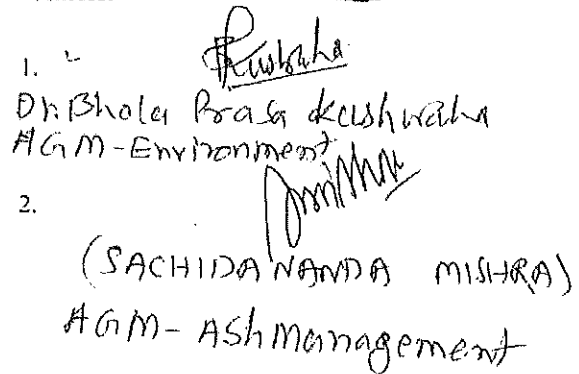 Kushwaha
1.
Dr. Bhola Prasa d kushwaha
AGM-Environment
2.
(SACHIDANANDA MISHRA)
AGM- Ash Management